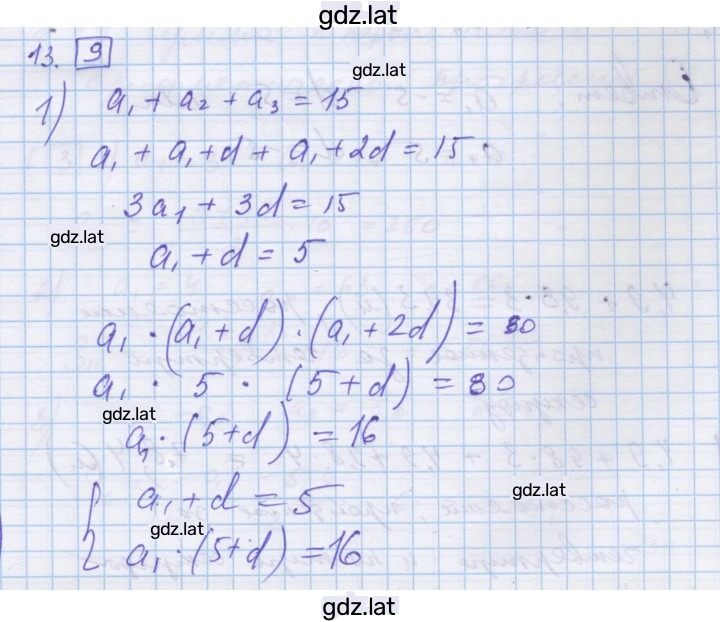 gdz.lat
13. 9
gdz.lat
1) a₁ + a₂ + a₃ = 15
a₁ + a₁ + d + a₁ + 2d = 15
3a₁ + 3d = 15
gdz.lat
a₁ + d = 5
a₁ · (a₁ + d) · (a₁ + 2d) = 80
a₁ · 5 · (5 + d) = 80
gdz.lat
a₁ · (5+d) = 16
{ a₁ + d = 5
gdz.lat
gdz.lat
a₁ · (5+d) = 16
gdz.lat